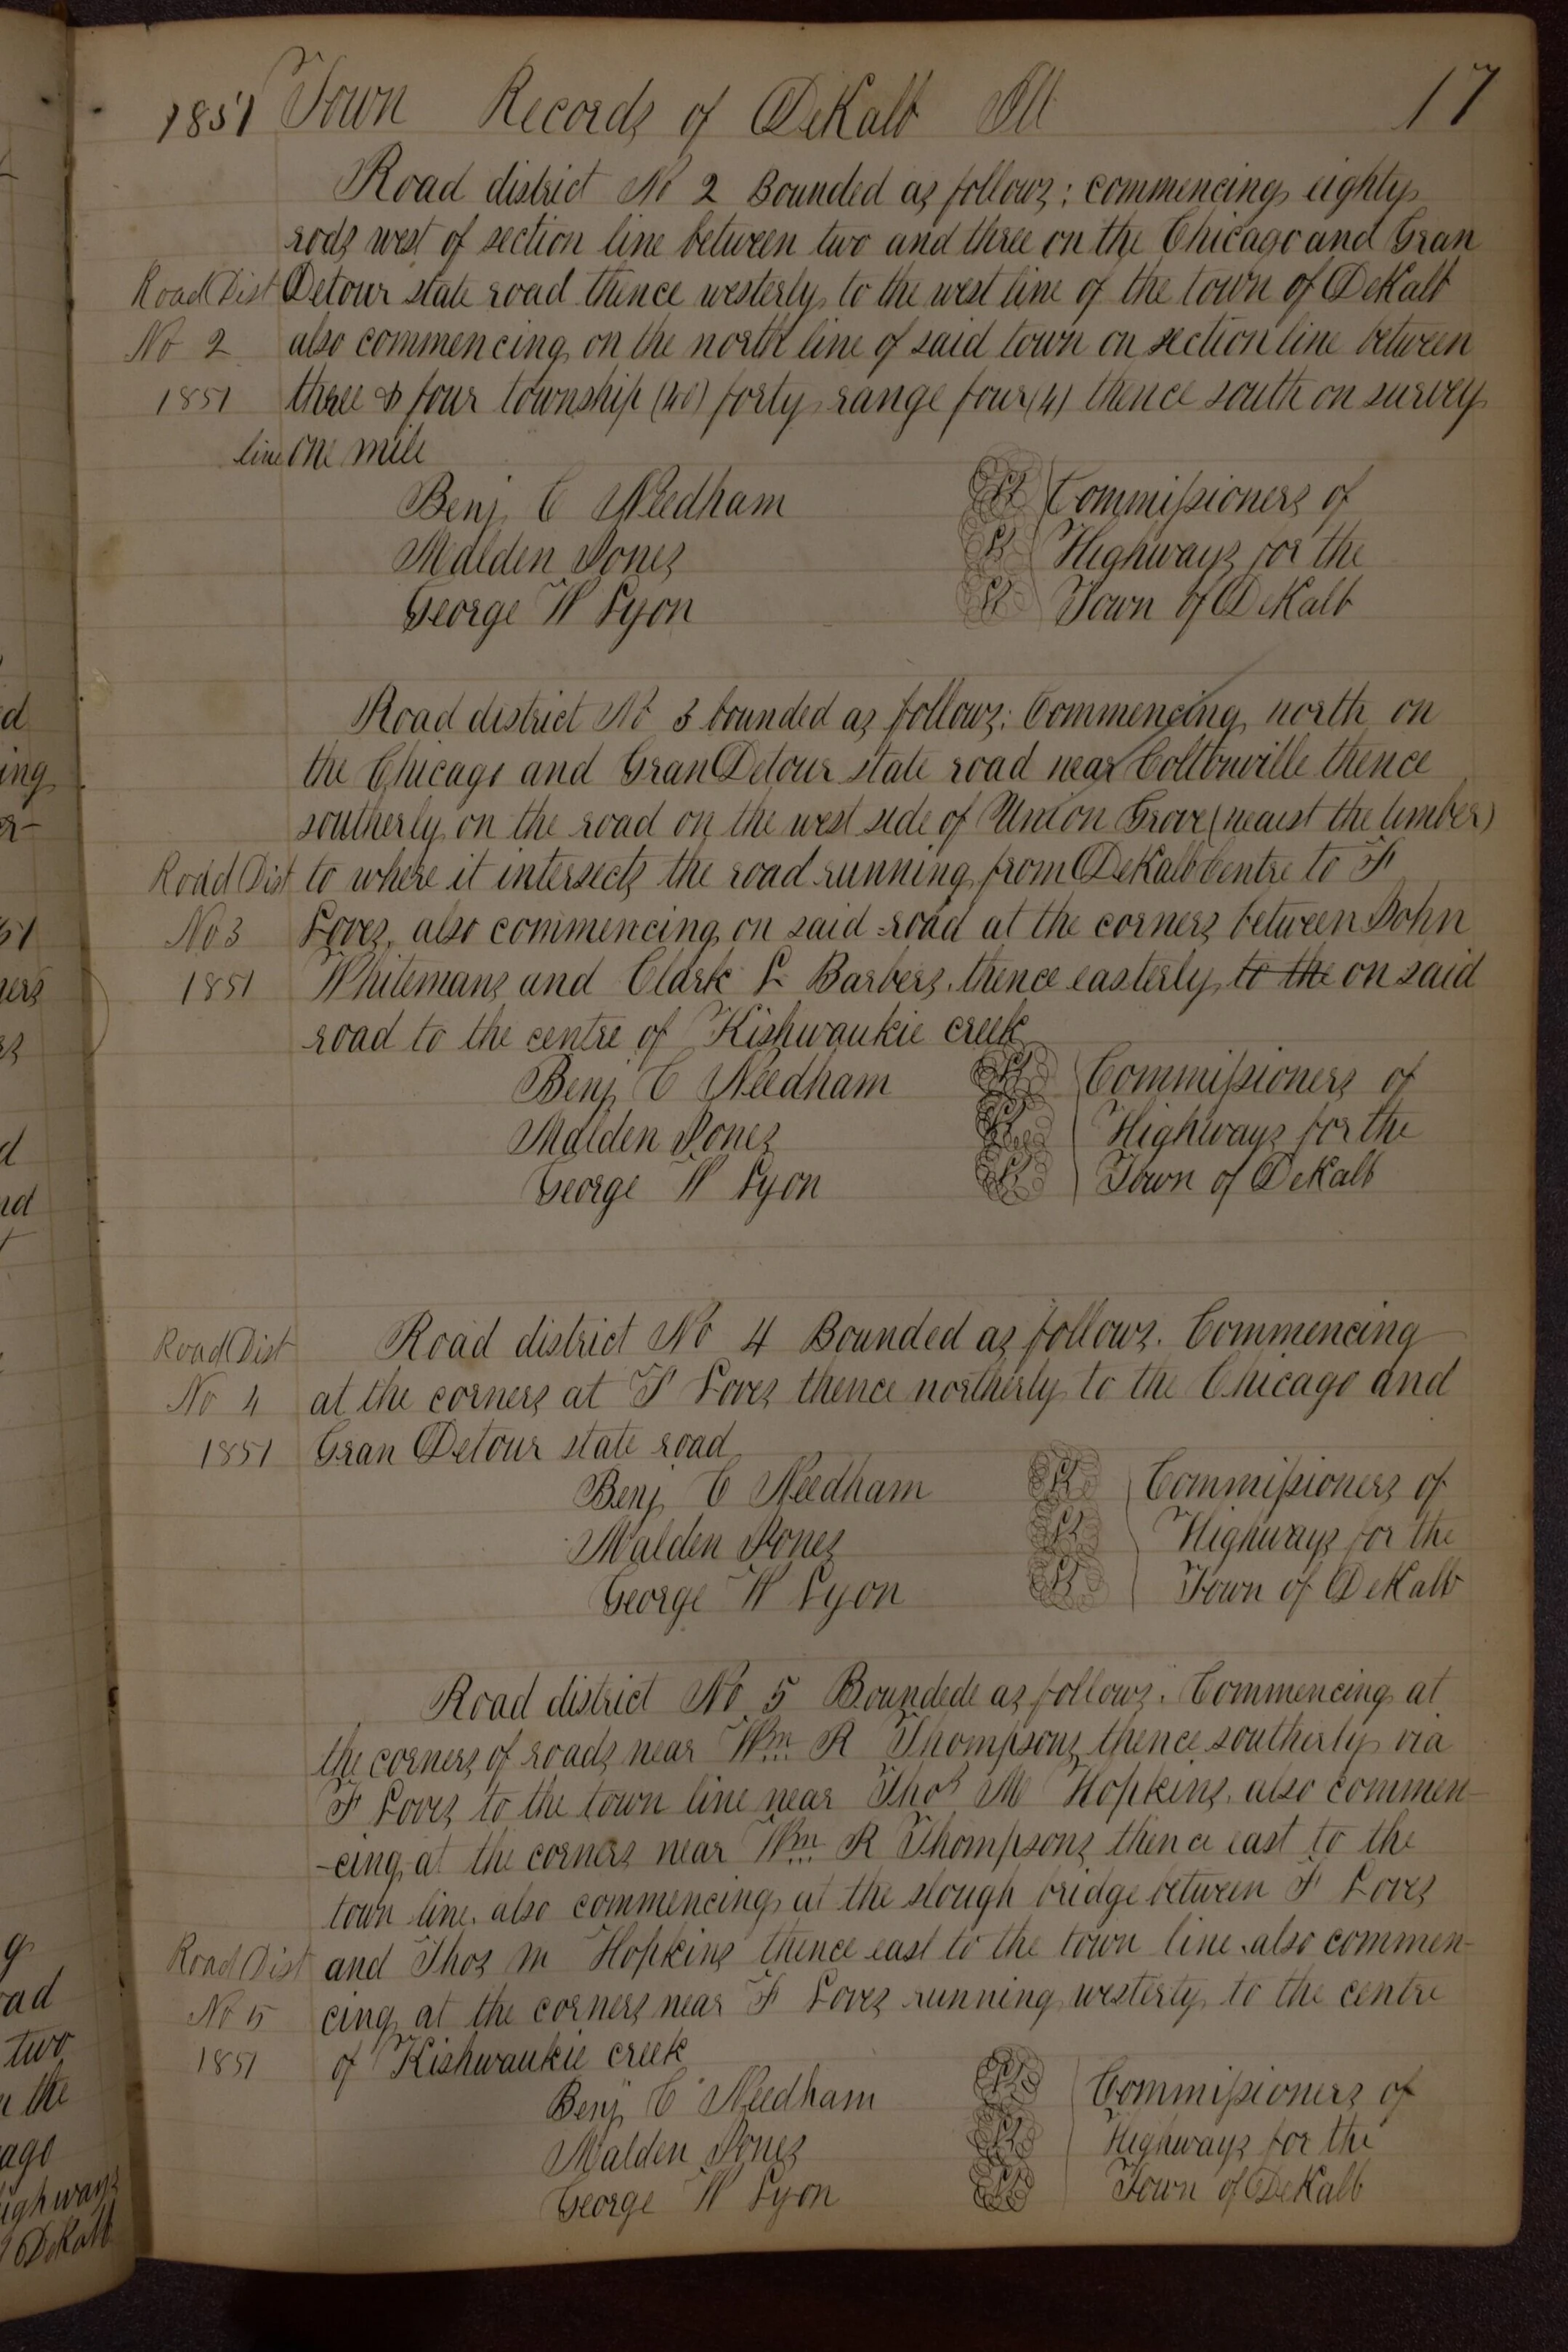 1851 Town Records of DeKalb Ill 17
Road district No 2 Bounded as follows; commencing eighty
rods west of section line between two and three on the Chicago and Gran
Road Dist Detour state road thence westerly to the west line of the town of DeKalb
No 2 also commencing on the north line of said town on section line between
1851 three & four township (40) forty range four (4) thence south on survey
line one mile
Benj C Needham LS Commissioners of
Malden Jones LS Highways for the
George W Lyon LS Town of DeKalb
Road district No 3 bounded as follows: Commencing north on
the Chicago and Gran Detour state road near Coltonville thence
southerly on the road on the west side of Union Grove (nearst the timber)
Road Dist to where it intersects the road running from DeKalb Centre to F
No 3 Loves, also commencing on said road at the corners between John
1851 Whitemans and Clark L Barbers, thence easterly to the on said
road to the centre of Kishwaukie creek
Benj C Needham LS Commissioners of
Malden Jones LS Highways for the
George W Lyon LS Town of DeKalb
Road Dist Road district No 4 Bounded as follows. Commencing
No 4 at the corners at F Loves thence northerly to the Chicago and
1851 Gran Detour state road
Benj C Needham LS Commissioners of
Malden Jones LS Highways for the
George W Lyon LS Town of DeKalb
Road district No 5 Boundede as follows. Commencing at
the corners of roads near Wm R Thompsons thence southerly via
F Loves to the town line near Thos M Hopkins, also commen-
-cing at the corners near Wm R Thompsons thence east to the
town line, also commencing at the slough bridge between F Loves
Road Dist and Thos M Hopkins thence east to the town line, also commen-
No 5 cing at the corners near F Loves running westerly to the centre
1851 of Kishwaukie creek
Benj C Needham LS Commissioners of
Malden Jones LS Highways for the
George W Lyon LS Town of DeKalb